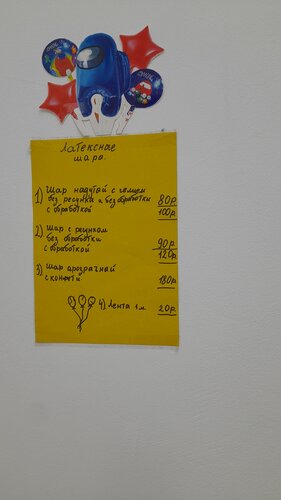 Латексные
шара.
1) Шар надутый с гелием
без рисунка и без обработки 80р
с обработкой 100р.
2) Шар с рисунком
без обработки 90р.
с обработкой 120р
3) Шар прозрачный
с конфети 180р.
4) Лента 1м. 20р.